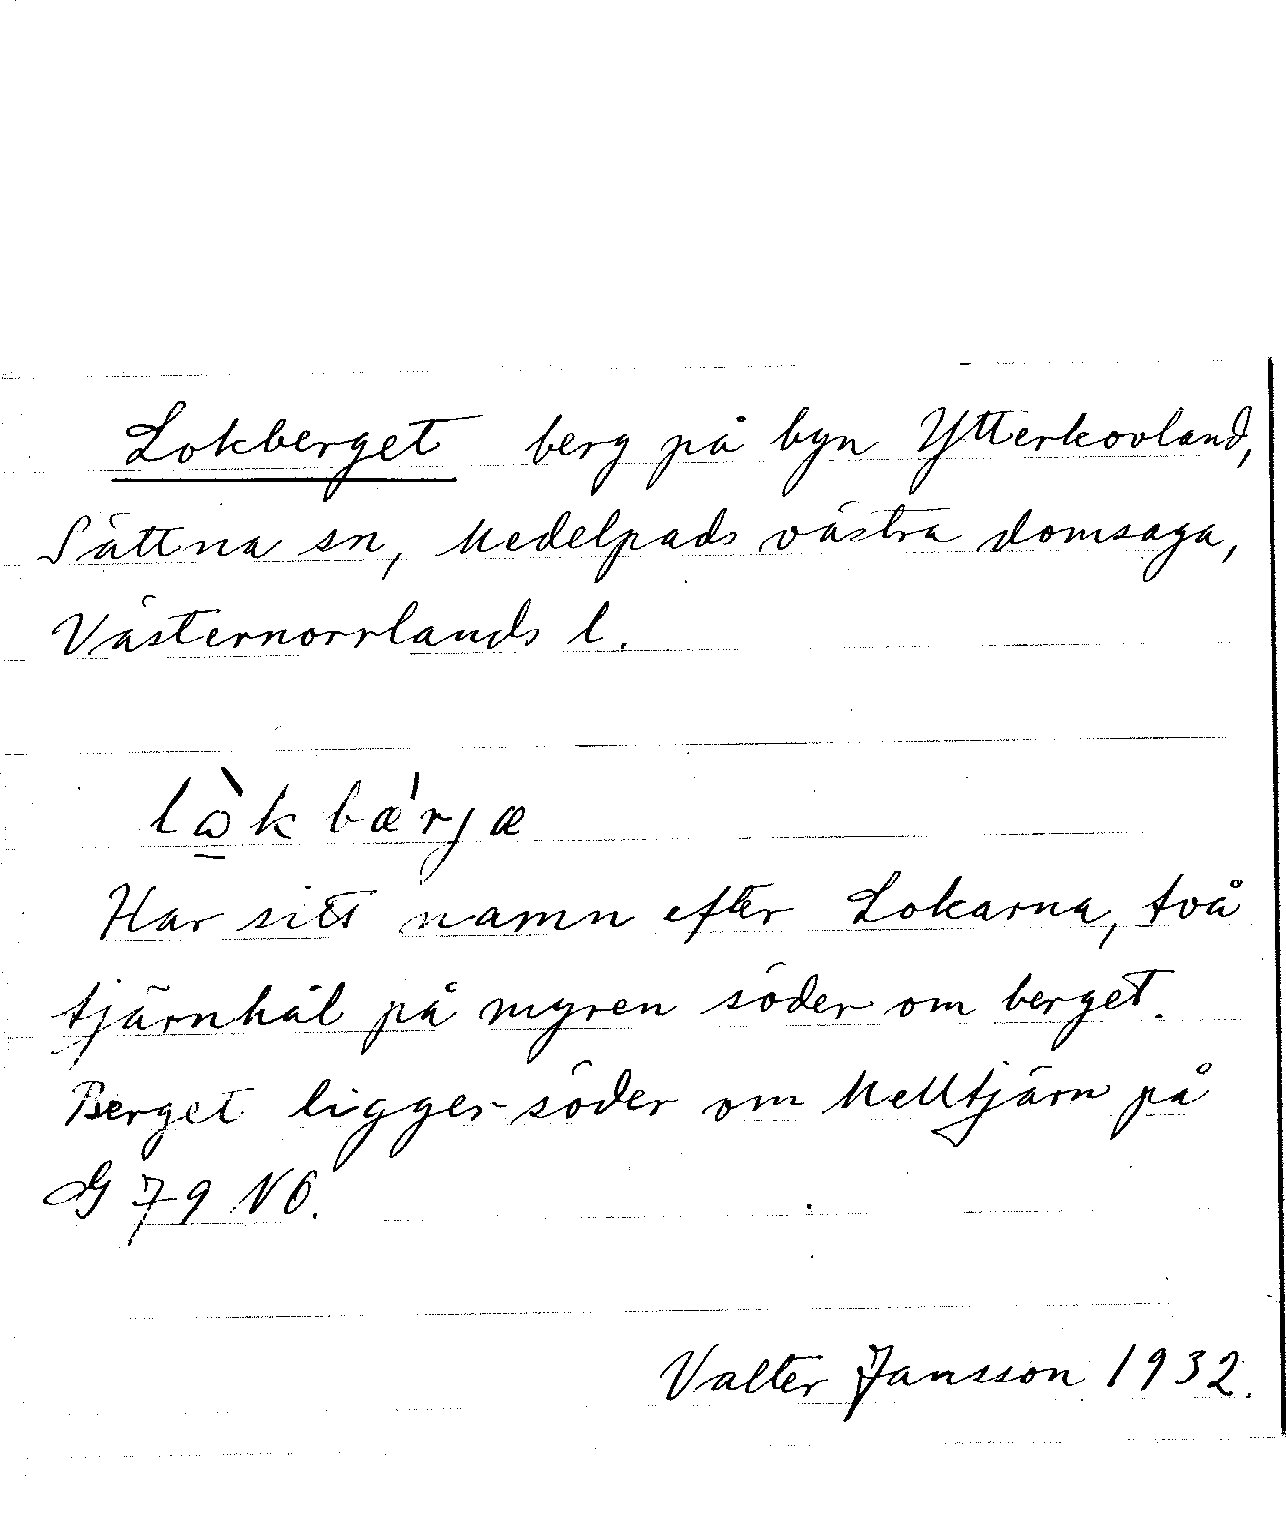 Lokberget berg på byn Ytterkovland,
Sättna sn, Medelpads västra domsaga,
Västernorrlands l.
lɷ̠̀kbæ'rjæ
Har sitt namn efter Lokarna, två
tjärnhål på myren söder om berget.
Berget ligger söder om Melltjärn på
G 79 NO.
Valter Jansson 1932.